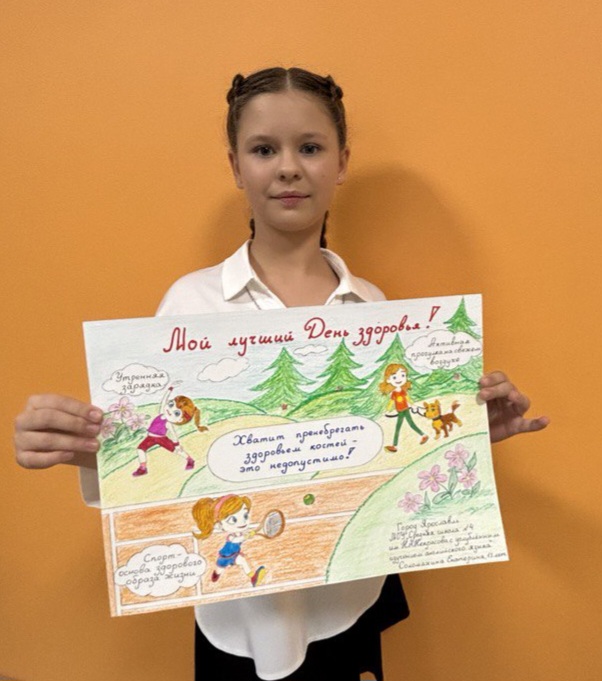 Мой лучший День здоровья!
Утренняя
зарядка
Активная
прогулка на свежем
воздухе
Хватит пренебрегать
здоровьем костей -
это недопустимо!
Спорт-
основа здорового
образа жизни
Город Ярославль
Средняя школа №4
им. Н.А.Некрасова с углублённым
английского языка
Екатерина